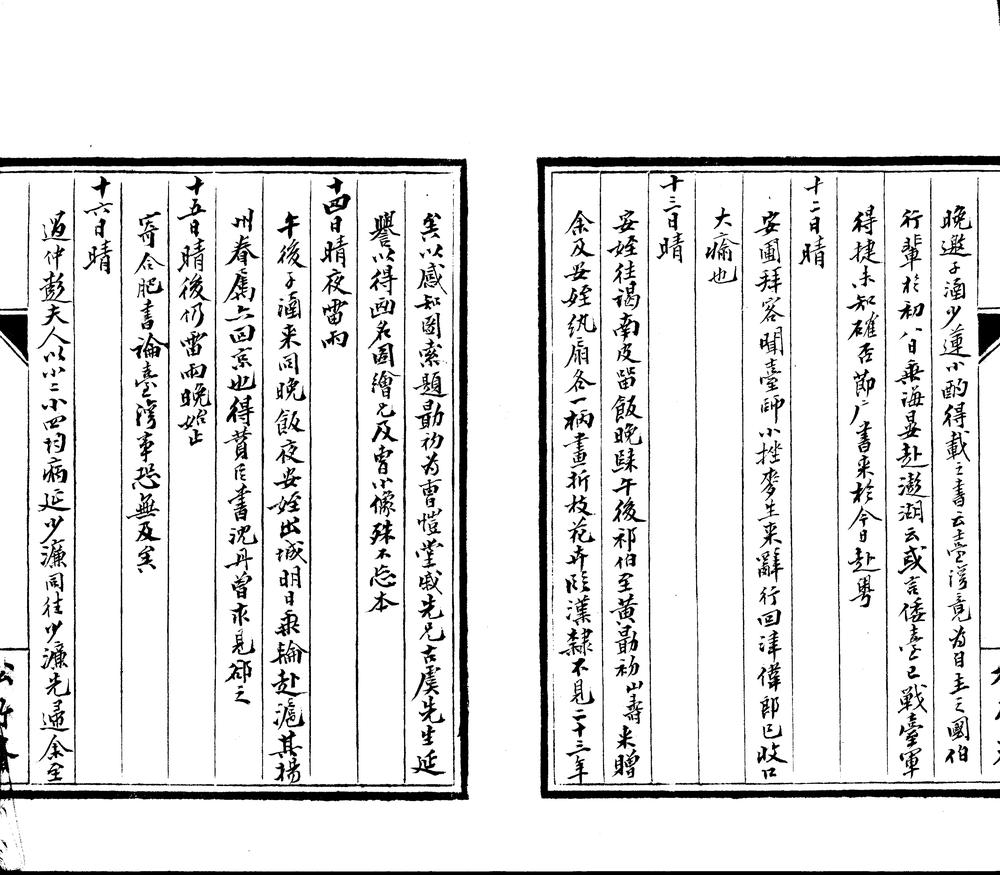 晚邀子涵少蓮小酌得載之書云臺灣竟為自主之國伯
行輩於初八日乘海晏赴澎湖云或言倭臺已戰臺軍
得捷未知確否節广書来於今日赴粵
十二日晴
安圃拜客聞臺師小挫麥生来辭行回津偉郎已收口
大癒也
十三日晴
安姪往謁南皮留飯晚歸午後祁伯至黃勖初山壽来贈
余及安姪紈扇各一柄畫折枝花卉臨漢隸不見二十三年
矣以感知圖索題勖初為曹愷堂戚先兄古虞先生延
譽以得画名圖繪兄及曹小像殊不忘本
十四日晴夜雷雨
午後子涵来同晚飯夜安姪出城明日乘輪赴滬其揚
州眷屬亦回京也得蕡臣書沈丹曾求見卻之
十五日晴後仍雷雨晚始止
寄合肥書論臺灣事恐無及矣
十六日晴
過仲彭夫人以小二小四均病延少濂同往少濂先歸余至